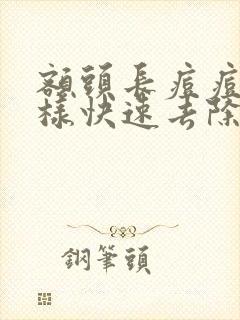 額頭長痘痘
樣快速去除
鋼筆頭